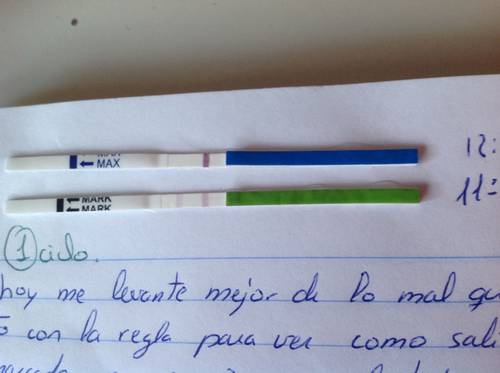 MAX
12:
MARK
MARK
11:
1 ciclo.
hoy me levante mejor de lo mal qu
con la regla para ver como sali